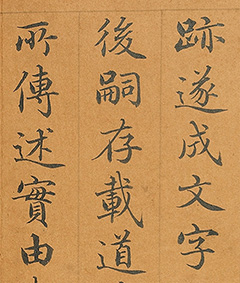 跡遂成文字
後嗣存載道
所傳述實由